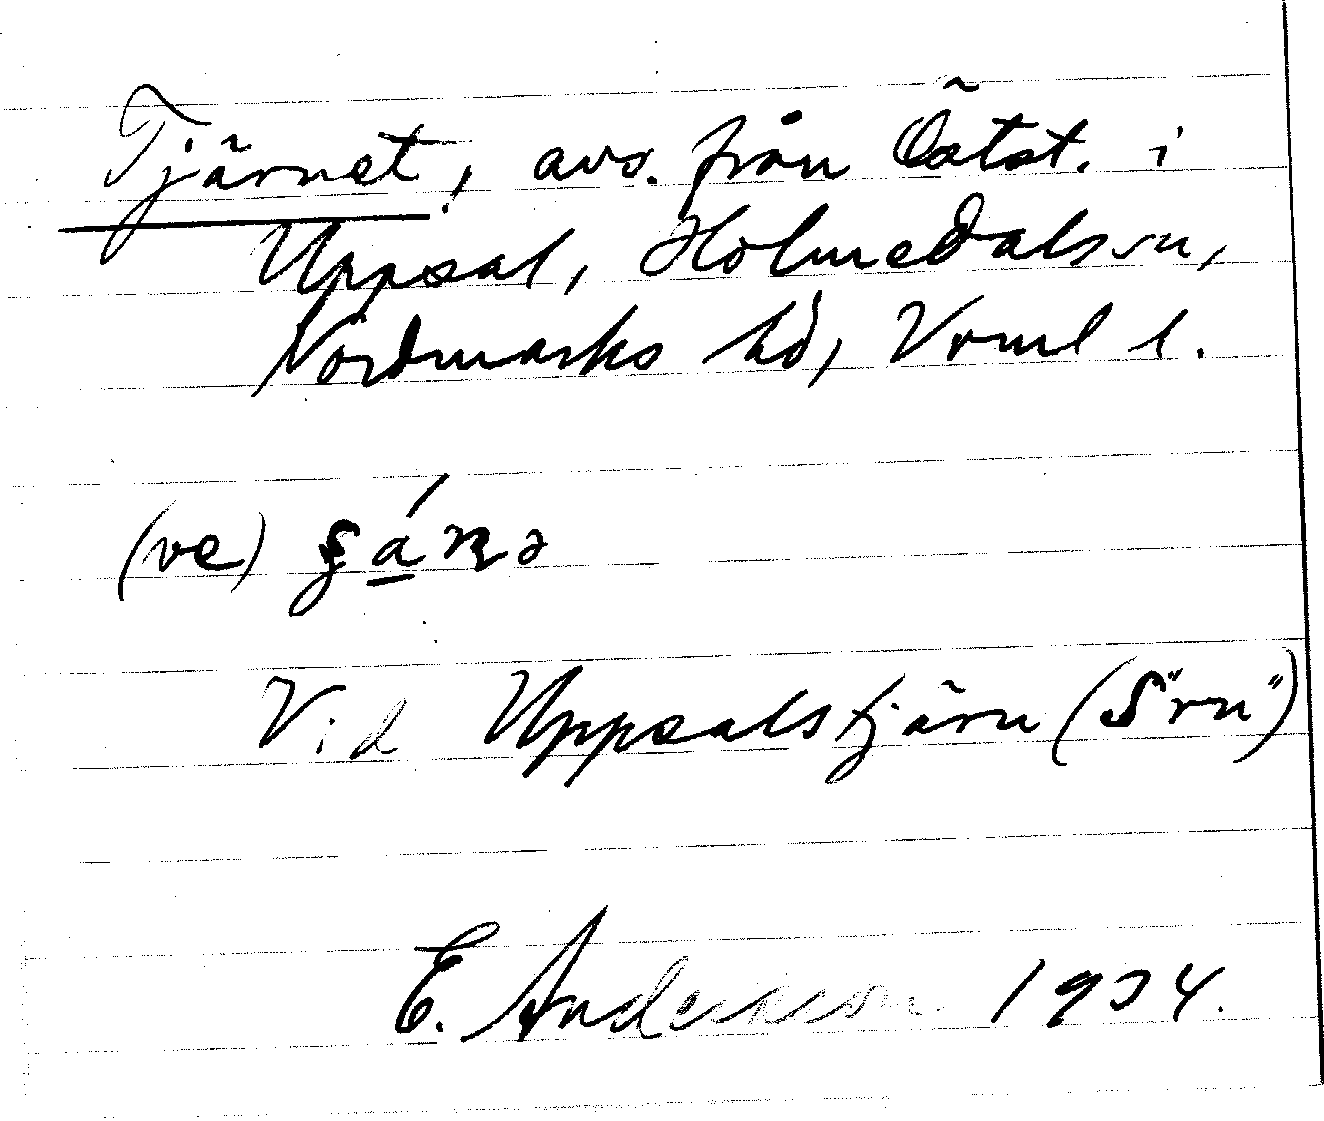 Tjärnet, avs. från Östst. i
Uppsal, Holmedals sn,
Nordmarks hd, Vrml l.
(ve)
Vid Uppsalstjärn (S"rn")
E. Andersson 1934.